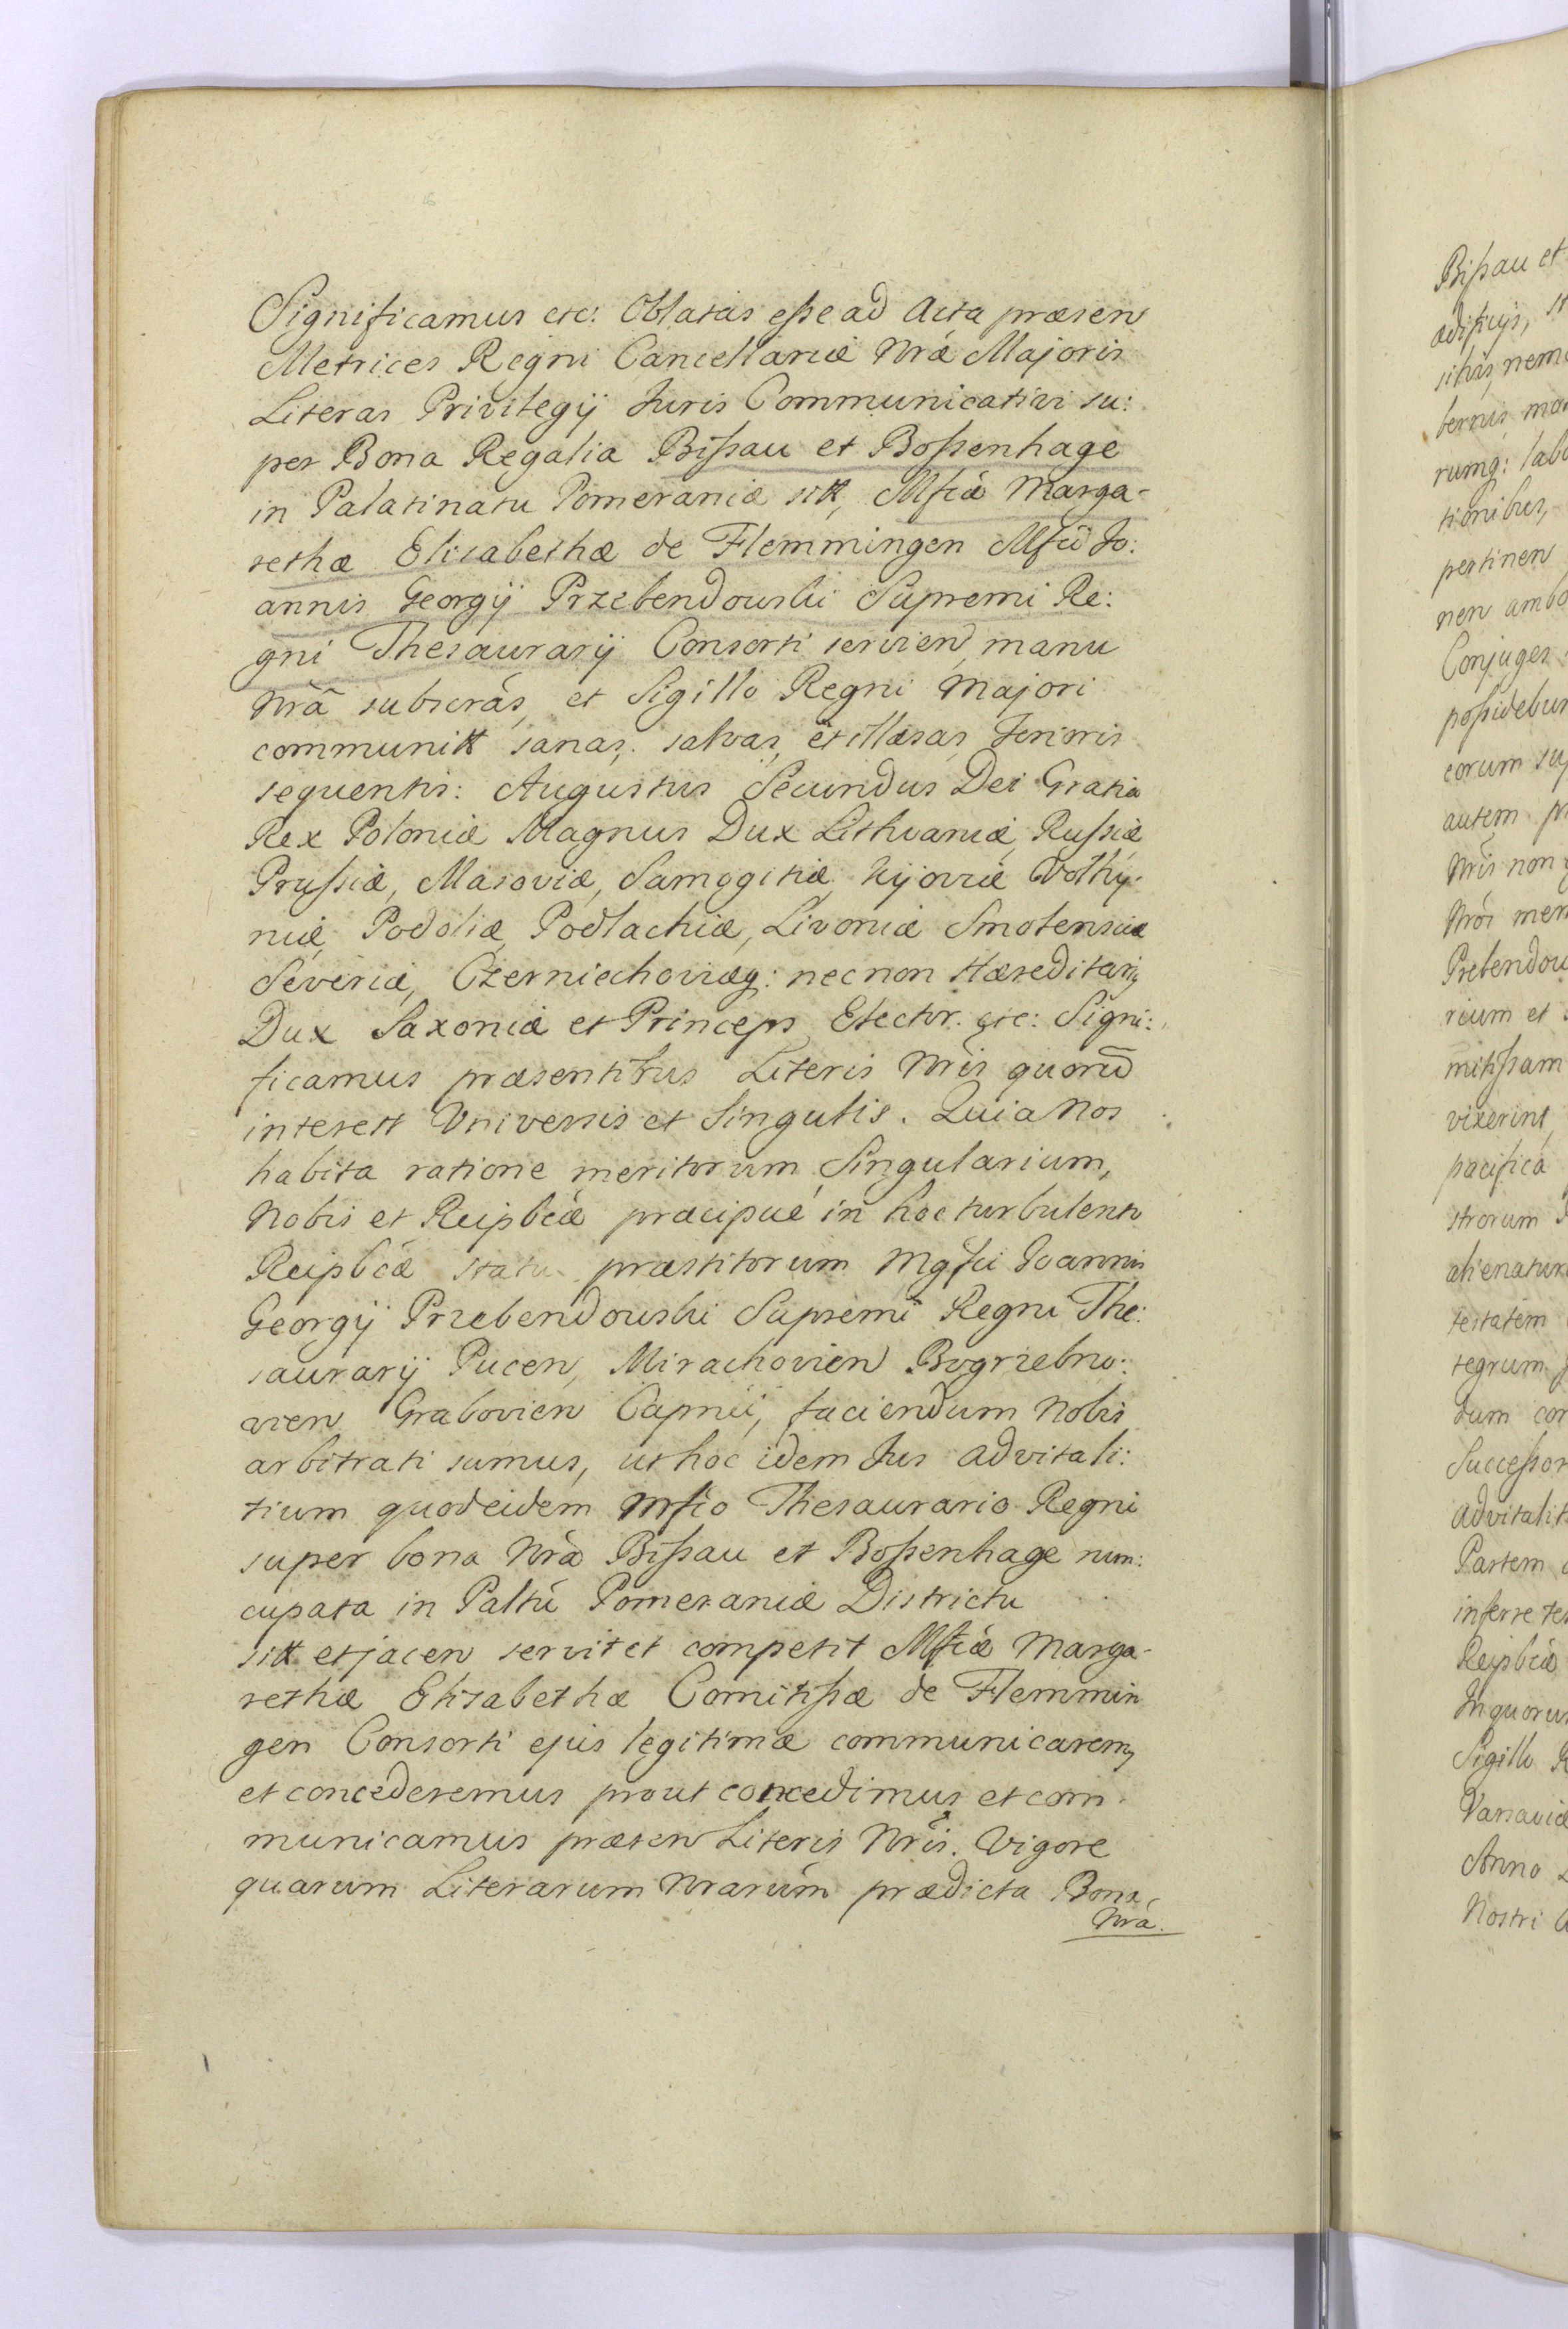 Significamus etc: Oblatas eſse ad Acta præsen
Metrices Regni Cancellariæ Nræ Majoris
Literas Privilegij Juris Communicativi su:
per Bona Regalia Biſsau et Boſsenhage
in Palatinatu Pomeraniæ sitt, Mfcæ Marga-
rethæ Elisabethæ de Flemmingen Mfci Jo:
annis Georgij Przebendowski Supremi Re:
gni Thesaurarij Consorti servien, manu
Nrâ subscras, et Sigillo Regni Majori
communitt sanas, salvas, et illæsas, Tenoris
sequentis: Augustus Secundus Dei Gratia
Rex Poloniæ Magnus Dux Lithvaniæ, Ruſsiæ
Pruſsiæ, Masoviæ, Samogitiæ, Kijoviæ Volhy-
niæ, Podoliæ, Podlachiæ, Livoniæ Smolensciæ
Severiæ, Czerniechoviæq: nec non Hæreditariꝯ
Dux Saxoniæ et Princeps Elector. etc: Signi:
ficamus præsentibus Literis Nris quorũ
interest Vniversis et Singulis. Quia Nos
habita ratione meritorum Singularium,
Nobis et Reipbcæ præcipué in hoc turbulento
Reipbcæ statu præstitorum Mgfci Joannis
Georgij Przebendowski Supremi Regni The:
saurarij Pucen, Mirachovien Bogrzebno:
vien Grabovien Capnei, faciendum Nobis
arbitrati sumus, ut hoc idem Jus advitali:
tium quod eidem Mfco Thesaurario Regni
super bona Nra Biſsau et Boſsenhage nun:
cupata in Paltu Pomeraniæ Districtu
sitt et jacen servit et competit Mfcæ Marga-
rethæ Elisabethæ Comitiſsæ de Flemmin
gen Consorti ejus legitimæ communicaremꝯ
et concederemus prout concedimus et com-
municamus præsen Literis Nris. Vigore
quarum Literarum Nrarum prædicta Bona
Nra.
Biſsau et
ædificijs,
nem
rumq: labo
tionibus,
pertinen
nen ambo
Conjuges
poſsidebun
eorum
autem
Nris non
Nroi
rium et
mitiſsam
vixerint,
pacifica
strorum
alienatur
testatem
tegrum
dum con
Succeſsor
advitalit
Partem
inferre
Reipbcæ
In quorum
Sigillo R
Varsaviæ
Anno
Nostri